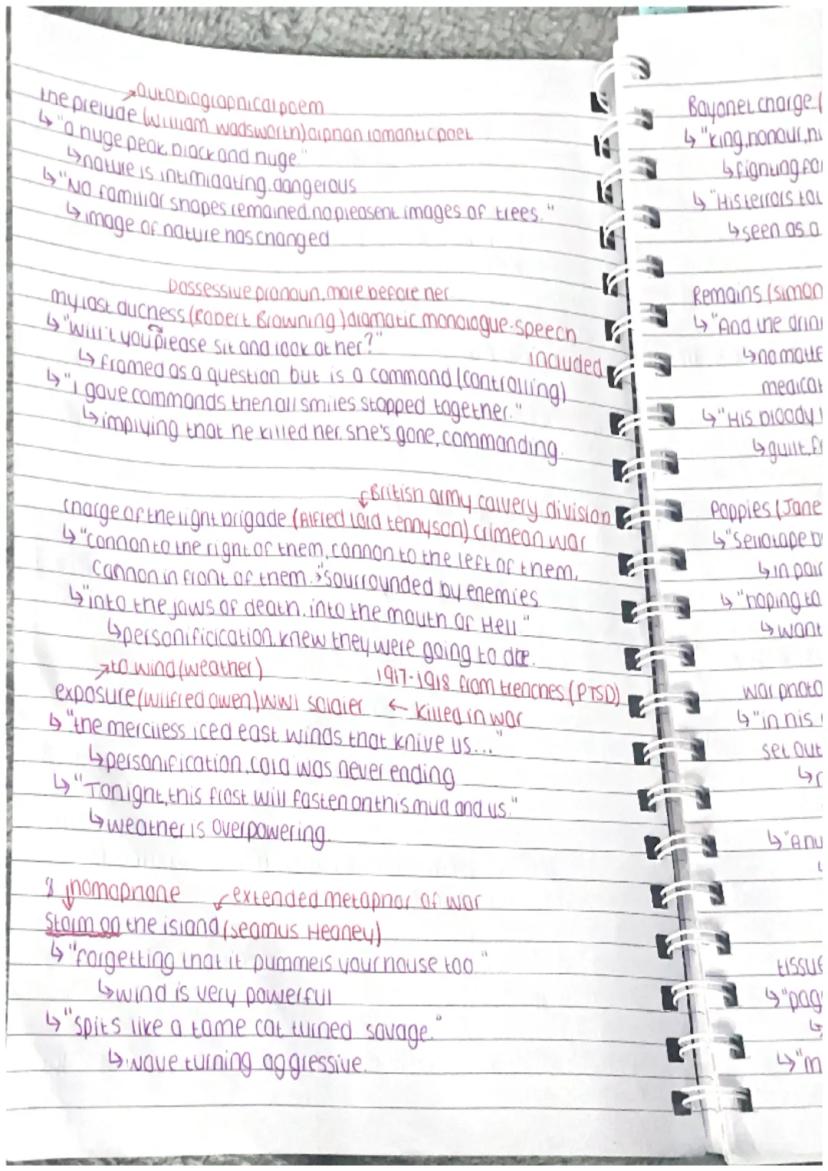 autobiographical poem
the prelude (william wadsworth) orphan romantic poet
↳"a huge peak, black and huge."
↳nature is intimidating. dangerous
↳"No familiar shapes remained. no pleasent images of trees."
↳image of nature has changed
possessive pronoun, more before her
my last duchess (Robert Browning) dramatic monologue-speech
included
↳"Will't you please sit and look at her?"
↳framed as a question but is a command (controlling)
↳"I gave commands then all smiles stopped together."
↳implying that he killed her. she's gone, commanding.
British army calvery division
charge of the light brigade (Alfred Lord tennyson) crimean war
↳"cannon to the right of them, cannon to the left of them,
cannon in front of them." sourrounded by enemies
↳"into the jaws of death. into the mouth of Hell"
↳personificication. knew they were going to die.
to wind (weather) 1917-1918 from trenches (PTSD)
exposure (wilfred owen) WW1 soldier ← killed in war
↳"the merciless iced east winds that knive us..."
↳personification, cold was never ending
↳"Tonight, this frost will fasten on this mud and us."
↳weather is overpowering.
homophone extended metaphor of war
Storm on the island (seamus Heaney)
↳"forgetting that it pummels your house too"
↳wind is very powerful
↳"spits like a tame cat turned savage."
↳wave turning aggressive.
Bayonet charge (
↳"king, honour, hu
↳fighting for
↳"His terrors tou
↳seen as a
Remains (simon
↳"And the drin
↳no matte
medicat
↳"His bloody
↳guilt, f
Poppies (Jane
↳"Sellotape b
↳in pai
↳"hoping to
↳want
war photo
↳"in his
set out
↳"Anu
tissue
↳"pag
↳"m